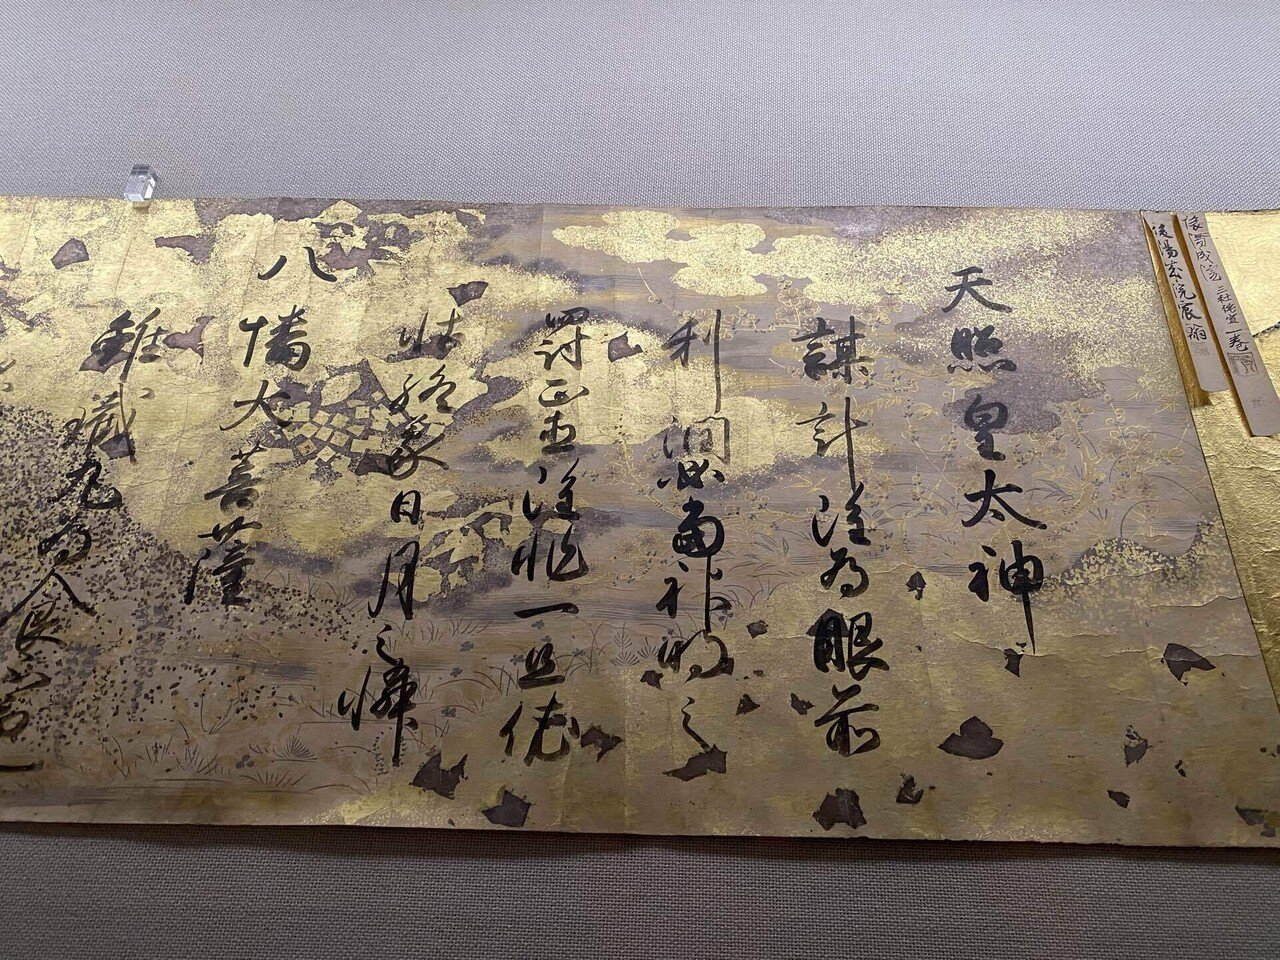 後陽成院三社託宣一巻
後陽成院宸翰
天照皇太神
謀計雖為眼前
利潤必当神明之
罸正直雖非一旦依
怙終蒙日月之憐
八幡大菩薩
鉄丸為食